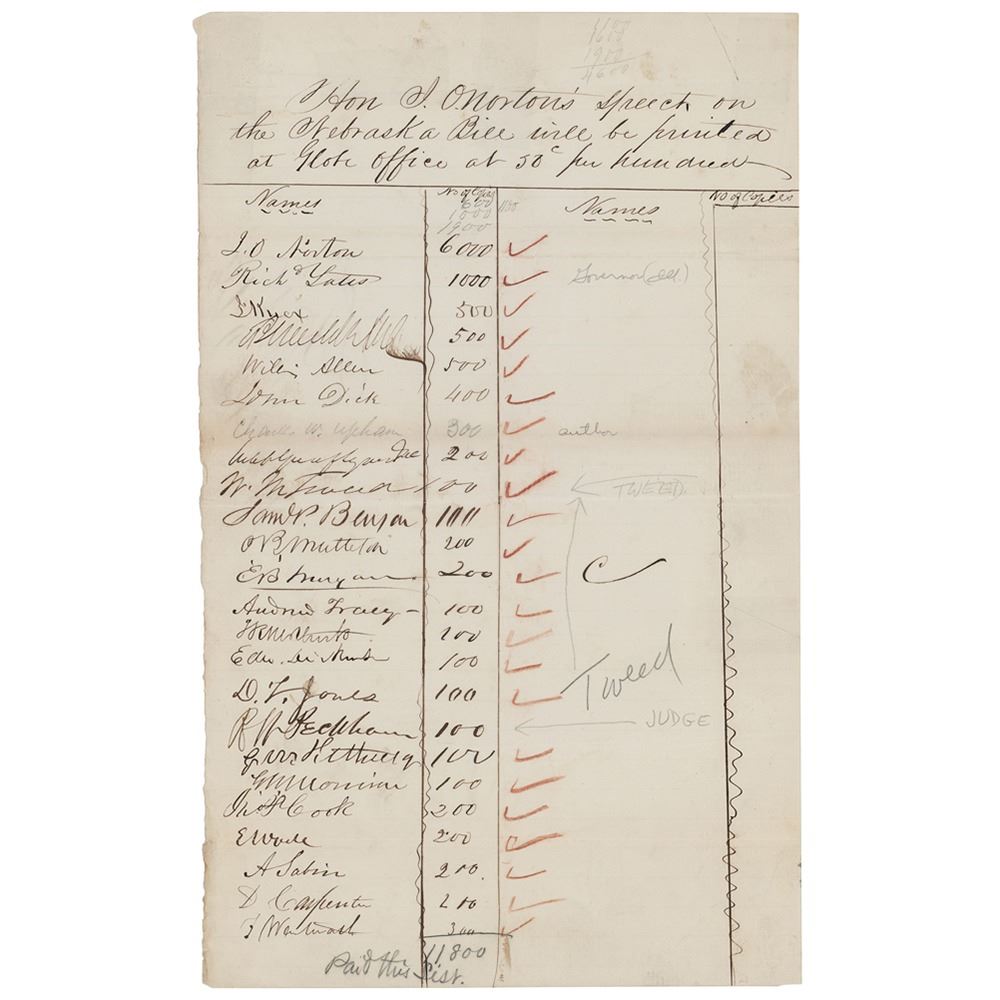 1900
4600
Hon J. O Norton's Speech on
the Nebraska Bill will be printed
at Globe Office at 50c per hundred
Names No of Copies Names No of Copies
600
1000
1900
J. O Norton 6000
Richd Yates 1000 Governor (Ill.)
J Knox 500
500
Willis Allen 500
John Dick 400
Charles W. Upham 300 author
200
W. M Tweed 100 TWEED
Saml P. Benson 100
O B Matteson 200
E B Morgan 200 C
Andrew Tracey 100
100
100
Tweed
D. T. Jones 100
R W Peckham 100 JUDGE
100
100
Cook 200
E Wade 200
A Sabin 200.
D Carpenter 200
J Wentworth 300
11800
Paid this List.